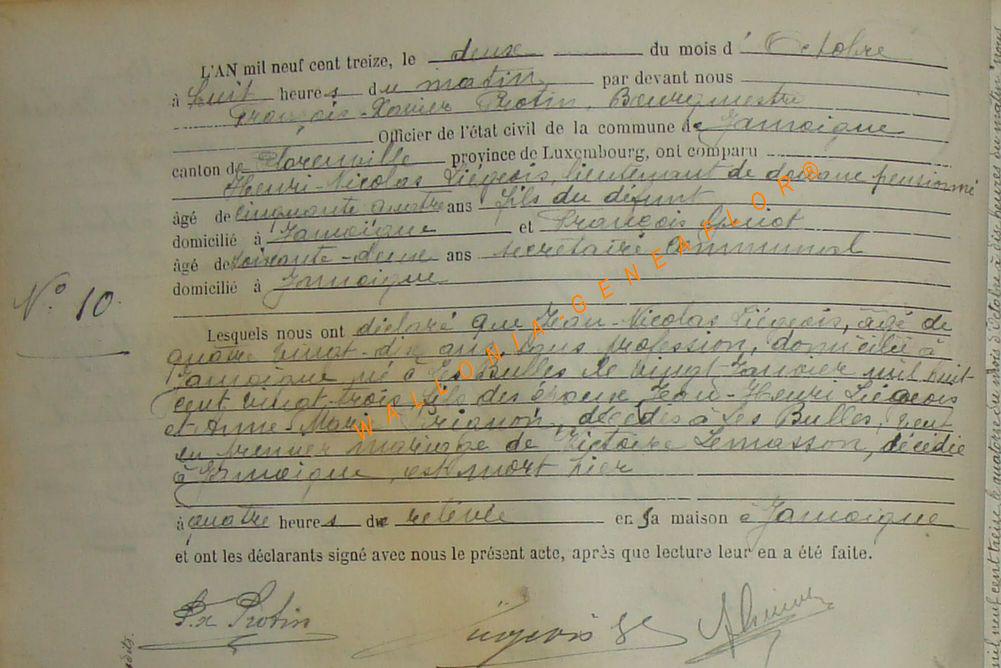 L'AN mil neuf cent treize, le deux du mois d'Octobre
à huit heures du matin par devant nous
François-Xavier Protin, Bourgmestre
Officier de l'état civil de la commune de Jamoigne
canton de Florenville province de Luxembourg, ont comparu
Henri-Nicolas Liégeois, lieutenant de douane pensionné
âgé de cinquante quatre ans fils du défunt
domicilié à Jamoigne et François
âgé de soixante-deux ans secrétaire communal
domicilié à Jamoigne
N° 10.
Lesquels nous ont déclaré que Jean-Nicolas Liégeois, âgé de
quatre vingt-dix ans, sans profession, domicilié à
Jamoigne né à Les Bulles le vingt Janvier mil huit
cent vingt-trois fils des époux Jean-Henri Liégeois
et Anne-Marie décédés à Les Bulles, veuf
en premier mariage de Victoire Lemasson, décédée
à Jamoigne, est mort hier
à quatre heures de relevée en sa maison à Jamoigne
et ont les déclarants signé avec nous le présent acte, après que lecture leur en a été faite.
Fx Protin Liégeois
WALLONIA-GENEAFLOR®